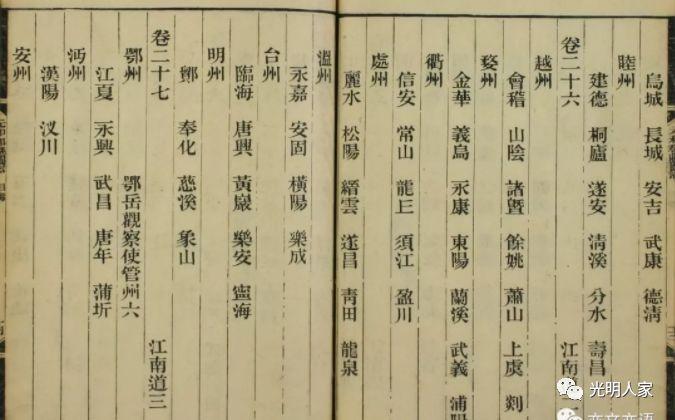 烏城 長城 安吉 武康 德淸
睦州
建德 桐廬 遂安 淸溪 分水 壽昌
卷二十六 江南道
越州
會稽 山陰 諸暨 餘姚 蕭山 上虞 剡
婺州
金華 義烏 永康 東陽 蘭溪 武義 浦陽
衢州
信安 常山 龍丘 須江 盈川
處州
麗水 松陽 縉雲 遂昌 靑田 龍泉
溫州
永嘉 安固 橫陽 樂成
台州
臨海 唐興 黃巖 樂安 寧海
明州
鄮 奉化 慈溪 象山
卷二十七 江南道三
鄂州 鄂岳觀察使管州六
江夏 永興 武昌 唐年 蒲圻
沔州
漢陽 汊川
安州
光明人家